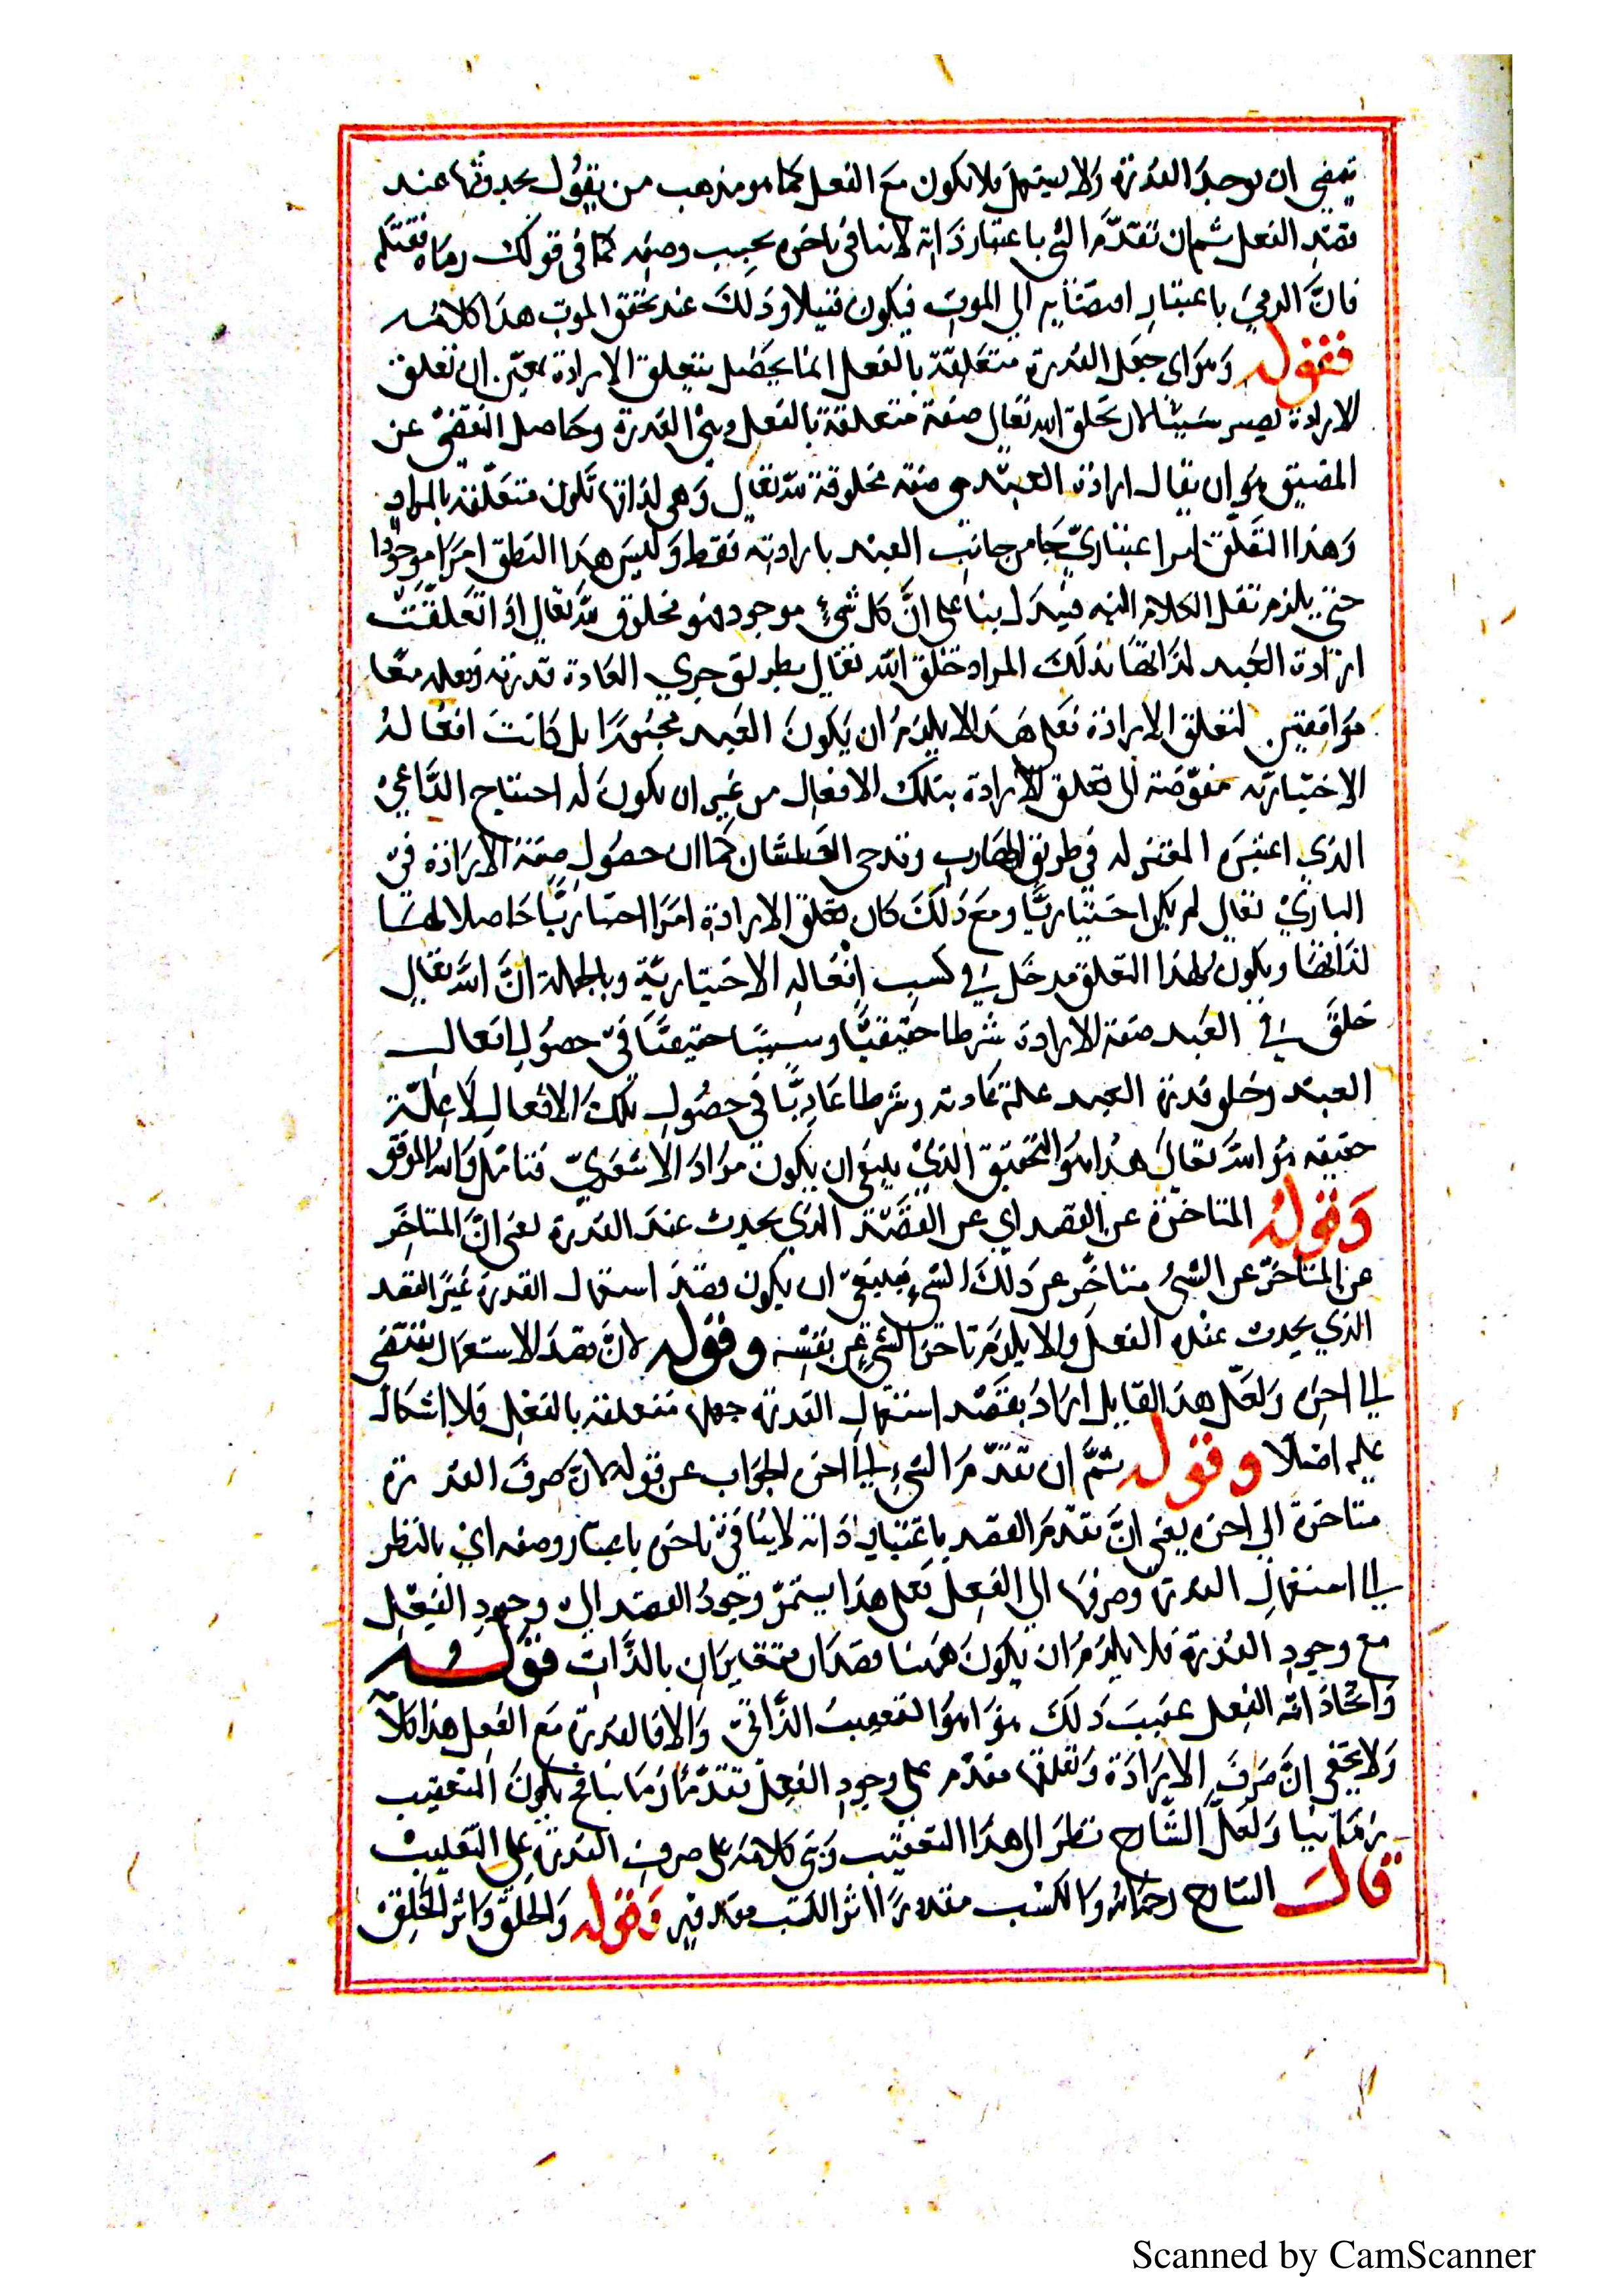 يقتضي ان يوجد القدرة ولا يستعمل فلا يكون مع الفعل كما هو مذهب من يقول بحدوثها عند
قصد الفعل ثم ان تقدم الشي باعتبار ذاته لا ينافي تاخره بحسب وصفه كما في قولك رماه فقتله
فان الرمي باعتبار افضائه الي الموت فيكون قتيلا وذلك عند تحقق الموت هذا كلامه
فقوله وهو اي جعل القدرة متعلقة بالفعل انما يحصل بتعلق الارادة بمعني ان تعلق
الارادة يصير سببا لان يخلق الله تعالى صفة متعلقة بالفعل وهي القدرة وحاصل التفصي عن
المضيق هو ان يقال ارادة العبد هي صفة مخلوقة لله تعالى وهي لذاتها تكون متعلقة بالمراد
وهذا التعلق امر اعتباري جا من جانب العبد بارادته فقط وليس هذا التعلق امرا موجودا
حتى يلزم نقل الكلام اليه فيه بنا على ان كل شيء موجود فهو مخلوق لله تعالى اذا تعلقت
ارادة العبد لذاتها بذلك المراد خلق الله تعالى بطريق جري العادة قدرته وفعله معا
موافقين لتعلق الارادة فعلى هذا لا يلزم ان يكون العبد مجبورا بل كانت افعاله
الاختيارية مفوضة الى تعلق الارادة بتلك الافعال من غير ان يكون له احتياج الداعي
الذي اعتبره المعتزله في طريق الهارب وقدحي العطشان كما ان حصول صفة الارادة في
الباري تعالى لم يكن اختياريا ومع ذلك كان تعلق الارادة امرا اختياريا حاصلا لها
لذاتها ويكون لهذا التعلق مدخل في كسب افعاله الاختيارية وبالجملة ان الله تعالى
خلق في العبد صفة الارادة شرطا حقيقيا وسببا حقيقيا في حصول افعال
العبد وخلق قدرة العبد علة عادية وشرطا عاديا في حصول تلك الافعال لا علة
حقيقة هو الله تعالى هذا هو التحقيق الذي ينبغي ان يكون مراد الاشعري فتامل والله الموفق
وقوله المتاخرة عن القصد اي عن القصد الذي يحدث عند القدرة يعني ان المتاخر
عن المتاخر عن الشئ متاخر عن ذلك الشيء فينبغي ان يكون قصد استعمال القدرة غير القصد
الذي يحدث عنده الفعل والا يلزم تاخر الشيء عن نفسه وقوله لان قصد الاستعمال يقتضي
الى اخره ولعل هذا القايل اراد بقصد استعمال القدرة جعلها متعلقة بالفعل فلا اشكال
عليه اصلا وقوله ثم ان تقدم الشيء الى اخره الجواب عن قوله لان صرف القدرة
متاخرة الى اخره يعني ان تقدم القصد باعتبار ذاته لا ينافي تاخره باعتبار وصفه اي بالنظر
الى استعمال القدرة وصرفها الي الفعل فعلى هذا يستمر وجود القصد الى وجود الفعل
مع وجود القدرة فلا يلزم ان يكون ههنا قصدان متغايران بالذات قوله
واتخاذ الله الفعل عقيب ذلك هو التعقيب الذاتي والا فالقدرة مع الفعل هذا كلامه
ولا يخفى ان صرف الارادة وتعلقها مقدم على وجود الفعل تقدما زمانيا فح يكون التعقيب
زمانيا ولعل الشارح نظر الى هذا التعقيب وبنى كلامه على صرف القدرة على التغليب
قال الشارح رحمه الله والكسب مقدورا اثر الكسب مقدور فيه وقوله والخلق واثر الخلق